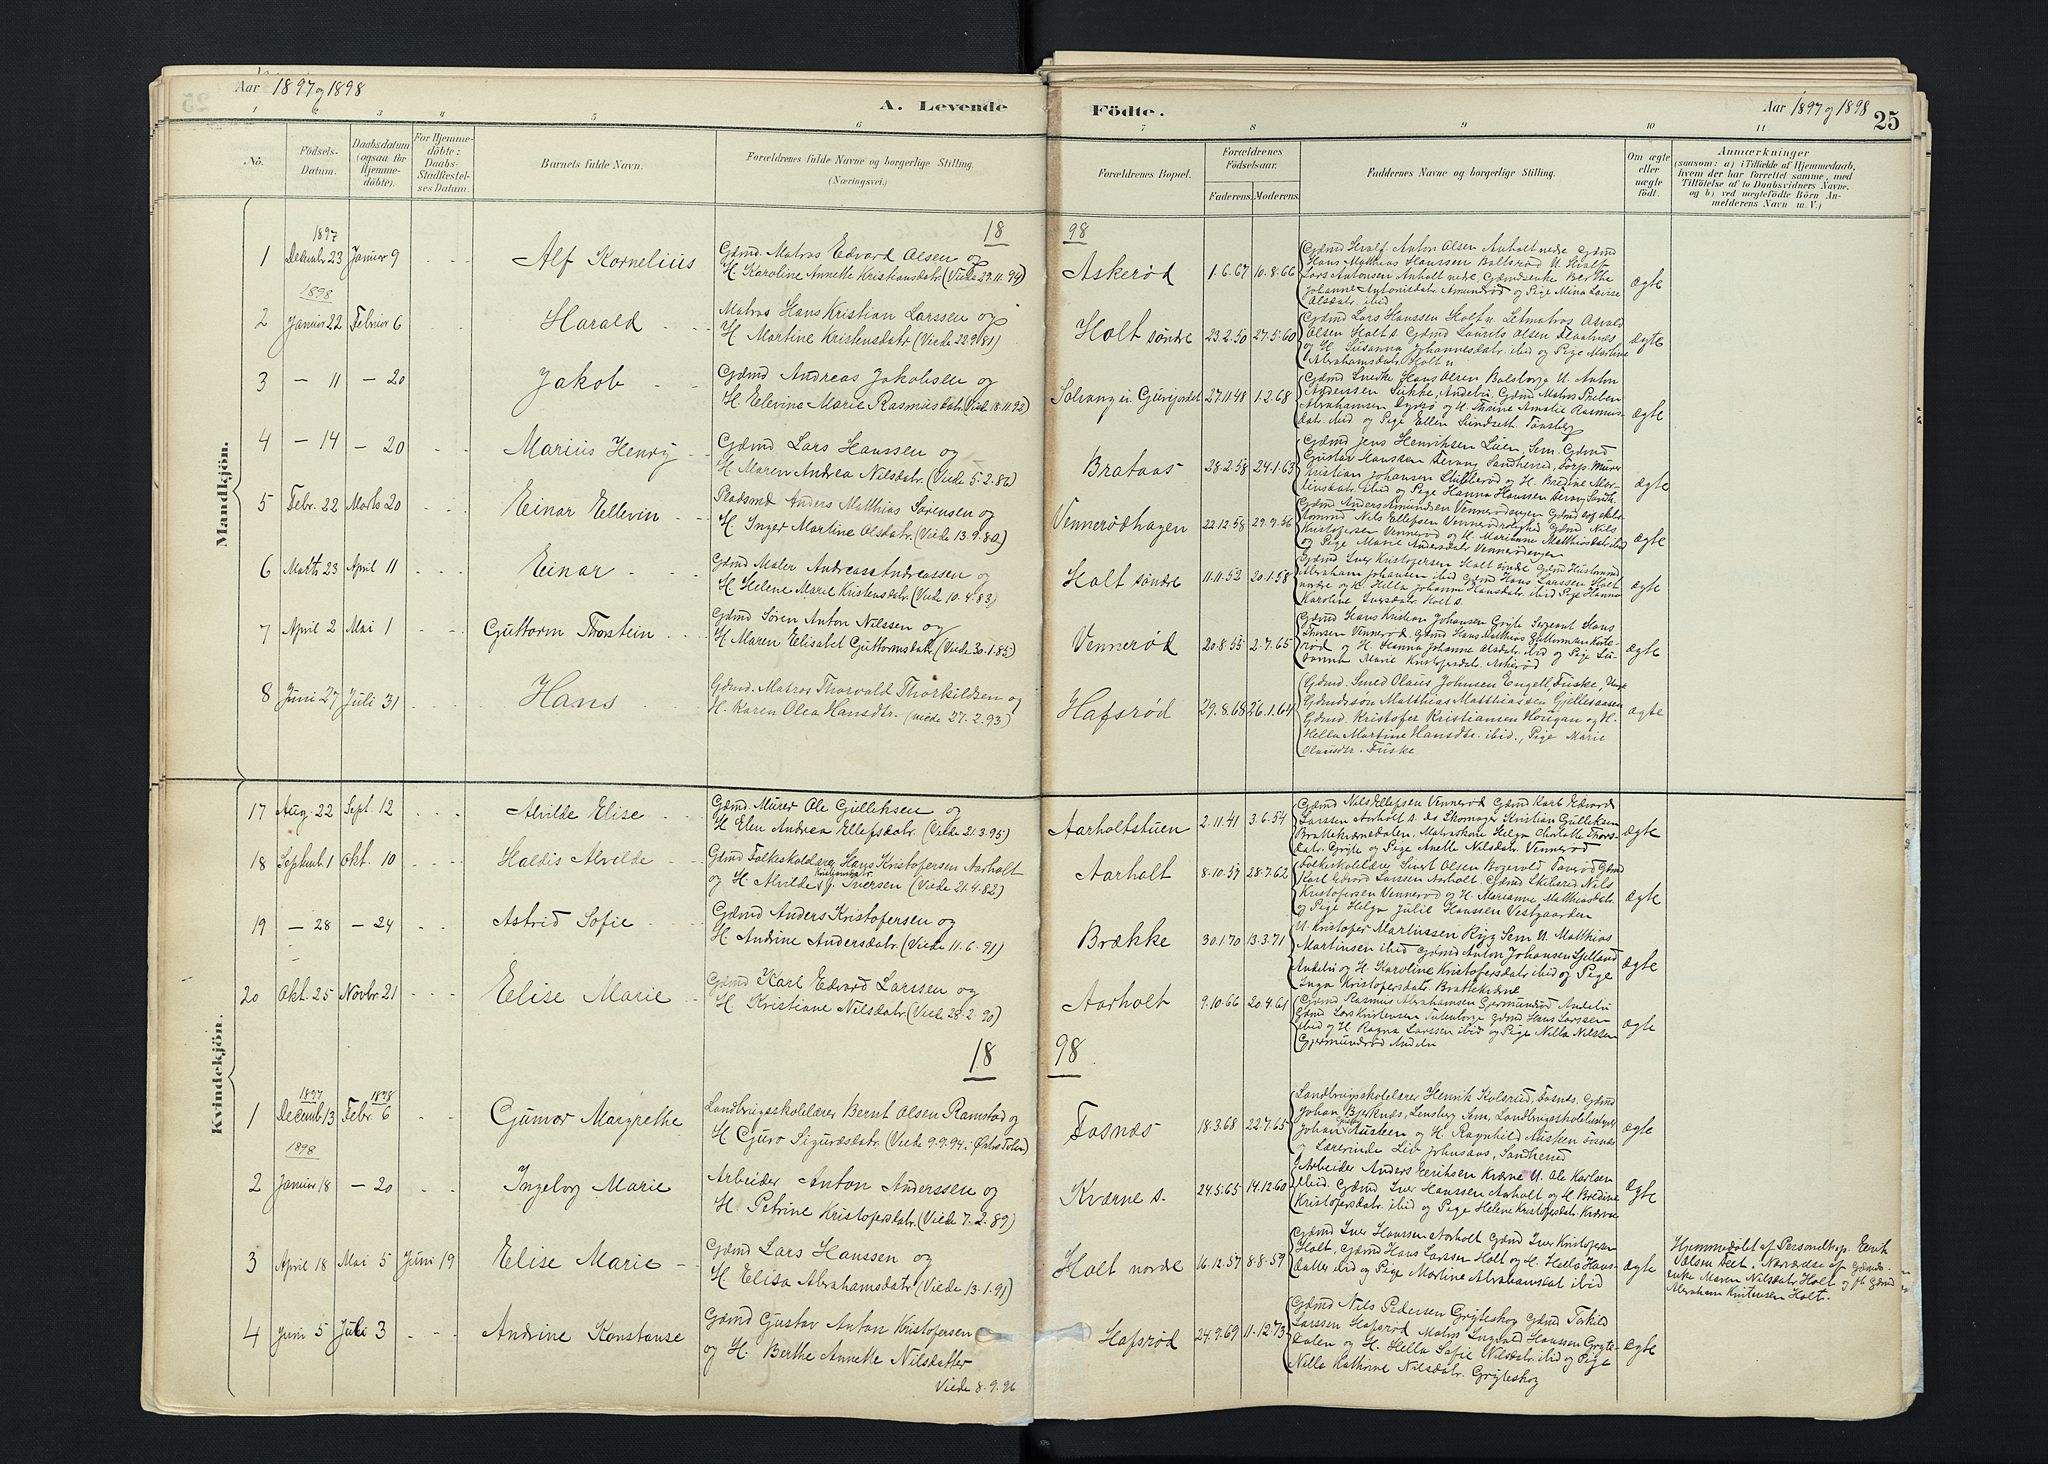 Aar 1897 og 1898
A. Levende
Födte.
Aar 1897 og 1898
25
1 2 3 4 5 6 7 8 9 10 11
No.
Födsels-
Datum.
Daabsdatum
(ogsaa for
Hjemme-
döbte).
For Hjemme-
döbte:
Daabs-
Stadfæstel-
ses Datum.
Barnets fulde Navn.
Forældrenes fulde Navne og borgerlige Stilling.
(Næringsvei.)
Forældrenes Bopæl.
Forældrenes
Födselsaar.
Faderens. Moderens.
Faddernes Navne og borgerlige Stilling.
Om ægte
eller
uægte
födt.
Anmærkninger
(saasom: a) i Tilfælde af Hjemmedaab,
hvem der har forrettet samme, med
Tilföielse af to Daabsvidners Navne,
og b) ved uægtefödte Börn An-
melderens Navn m. V.)
Mandkjön.
18 98
1897
1 Decembr 23 Januar 9 Alf Kornelius
Gdmd. Matros Edvard Olsen og
H. Karoline Annette Kristiansdatr. (Viede 29.11.94)
Askerød 1.6.67 10.8.66
Hans Matthias Hanssen
Lars Antonsen Anholt nedre
Johanne Antonisdatr. Amundrød og Pige Mina Lovise
Olsdatr. ibid
ægte
1898
2 Januar 22 Februar 6 Harald
Matros Hans Kristian Larssen og
H. Martine Kristensdatr. (Viede 22.9.81)
Holt søndre 23.2.50 27.5.60
Gdmd Lars Hanssen Holt n.
Olsen Holt s. Gdmd Laurits Olsen
og H. Susanna Johannesdatr. ibid og Pige Martine
Abrahamsdatr. Holt n
ægte
3 — 11 — 20 Jakob
Gdmd Andreas Jakobsen og
H. Elevine Marie Rasmusdatr. (Viede 18.11.92)
27.11.48 1.2.68
Abrahamsen og H. Thrine Amalie Rasmus-
datr. ibid og Pige Ellen Sundseth Tønsberg
ægte
4 — 14 — 20 Marius Henry
Gdmd Lars Hanssen og
H. Maren Andrea Nilsdatr. (Viede 5.2.82)
Brataas 28.2.58 24.1.63
Gdmd Jens Henriksen Lien, Sem, Gdmd
Gustav Hanssen
Kristian Johansen og H. Bredine Mar-
tinsdatr. ibid og Pige Hanna Hanssen
ægte
5 Febr. 22 Marts 20 Einar Ellevin
Pladsmd Anders Matthias Sørensen og
H. Inger Martine Olsdatr. (Viede 13.9.80)
Vennerødhagen 22.12.58 29.7.56
Kristofersen Vennerød og H. Marianne Matthiasdatr. ibid
og Pige Marie Andersdatr. Vennerødengen
ægte
6 Marts 23 April 11 Einar
Gdmd Maler Andreas Andreassen og
H. Helene Marie Kristensdatr. (Viede 10.4.83)
Holt søndre 11.11.52 20.1.58
Gdmd Iver Kristofersen Holt søndre Gdmd Husmand
Abraham Johansen ibid Gdmd Hans Larssen Holt
nordre og H. Hella Johanne Hansdatr. ibid Pige Hanna
Karoline Iversdatr. Holt s.
ægte
7 April 2 Mai 1 Guttorm Thorstein
Gdmd Søren Anton Nilssen og
H. Maren Elisabet Guttormsdatr. (Viede 30.1.85)
Vennerød 20.8.55 2.7.65
Gdmd Hans Kristian Johansen Gryte Sergeant Hans
Thorsen Vennerød Gdmd Hans Matthias Guttormsen
rød og H. Hanna Johanne Olsdatr. ibid og Pige Lo-
vanna Marie Kristofersdatr. Askerød
ægte
8 Juni 27 Juli 31 Hans
Gdmd. Matros Thorvald Thorkildsen og
H. Karen Olea Hansdtr. (viede 27.2.93)
Hafsrød 29.8.68 26.1.64
Gdmd. Smed Olaus Johnsen Engell, Fuske, Unge
Gdmdssøn Matthias Matthiassen Gjellesaasen
Gdmd. Kristofer Kristiansen Hougan og H.
Hella Martine Hansdtr. ibid., Pige Marie
Olausdtr. Fuske
ægte
Kvindekjön.
17 Aug. 22 Sept. 12 Alvilde Elise
Gdmd. Murer Ole Gulliksen og
H. Elen Andrea Ellefsdatr. (Viede 21.3.95)
Aarholtstuen 2.11.41 3.6.54
Gdmd Nils Ellefsen Vennerød Gdmd Karl Edvard
Larssen Aarholt s. ds Skomager Kristian Gulliksen
Brattekværnedalen. Matroskone Helga Charlotte Thors-
datr. Gryte og Pige Anette Nilsdatr. Vennerød
ægte
18 Septemb. 1 Okt. 10 Haldis Alvilde
Gdmd Folkeskolelærer Hans Kristofersen Aarholt
og H. Alvilde Kristiansdatr. f. Iversen (Viede 21.4.82)
Aarholt 8.10.57 28.7.62
Folkeskolelærer Sivert Olsen Bogevold Gdmd
Karl Edvard Larssen Aarholt. Gdmd Skibsred Nils
Kristofersen Vennerød og H. Marianne Matthiasdatr.
og Pige Helga Julie Hanssen Vestgaarden
ægte
19 — 28 — 24 Astrid Sofie
Gdmd Anders Kristofersen og
H. Andrine Andersdatr. (Viede 11.6.91)
Brække 30.1.70 13.3.71
U. Kristofer Martinssen Ryg Sem U. Matthias
Martinsen ibid Gdmd Anton Johansen Sjelland
Andebu og H. Karoline Kristofersdatr. ibid og Pige
Inga Kristofersdatr. Brattekværne
ægte
20 Okt. 25 Novbr. 21 Elise Marie
Gdmd Karl Edvard Larssen og
H. Kristiane Nilsdatr. (Viede 28.2.90)
Aarholt 9.10.66 20.4.61
Gdmd Rasmus Abrahamsen Gjermundrød Andebu
Gdmd Lars Kristensen Gdmd Hans Larssen
ibid og H. Ragna Larssen ibid og Pige Nilla Nilssen
Gjermundrød Andebu
ægte
18 98
1897 1898
1 Decemb. 13 Febr. 6 Gunvor Margrethe
Landbrugsskolelærer Bernt Olsen Ramstad og
H. Guro Sigurdsdatr. (Viede 9.9.94 i Østre Toten)
Fosnæs 18.3.68 22.7.65
Landbrugsskolelærer Henrik Kolsrud, Fosnes, Gdmd
Johan Bjerknæs, Lensberg Sem, Landbrugsskolebestyrer
Johan Austeen og H. Ragnhild Austeen Fosnæs
og Lærerinde Liv Johnsaas, Sandherred
ægte
1898
2 Januar 18 — 20 Ingeborg Marie
Arbeider Anton Anderssen og
H. Petrine Kristofersdatr. (Viede 7.2.89)
Kværne s. 24.5.65 14.12.60
Arbeider Anders Eriksen Kværne U. Ole Karlsen
ibid. Gdmd Iver Hanssen Aarholt og H. Bredine
Kristofersdatr. ibid og Pige Helene Kristofersdatr. Kværne
ægte
3 April 18 Mai 5 Juni 19 Elise Marie
Gdmd Lars Hanssen og
H. Elisa Abrahamsdatr. (Viede 13.1.91)
Holt nordre 16.12.57 8.8.59
Gdmd Iver Hanssen Aarholt Gdmd Iver Kristofersen
Holt, Gdmd Hans Larssen Holt og H. Hella Hans-
datter ibid og Pige Martine Abrahamsdatr ibid
ægte
Hjemmedøbt af Personelkap. Eirik
Nærværelse af Gdmds-
enke Maren Nilsdatr. Holt og Gdmd
Abraham Kristensen Holt.
4 Juni 5 Juli 3 Andrine Konstanse
Gdmd Gustav Anton Kristofersen
og H. Berthe Annette Nilsdatter
Viede 8.9.96
Hafsrød 24.9.69 11.12.73
Gdmd Nils Pedersen Gryteskog Gdmd Torkild
Larssen Hafsrød Matros Ingvald Hanssen Gryte-
dalen og H. Hella Sofie Nilsdatr. ibid og Pige
Nilla Kathrine Nilsdatr. Gryteskog
ægte